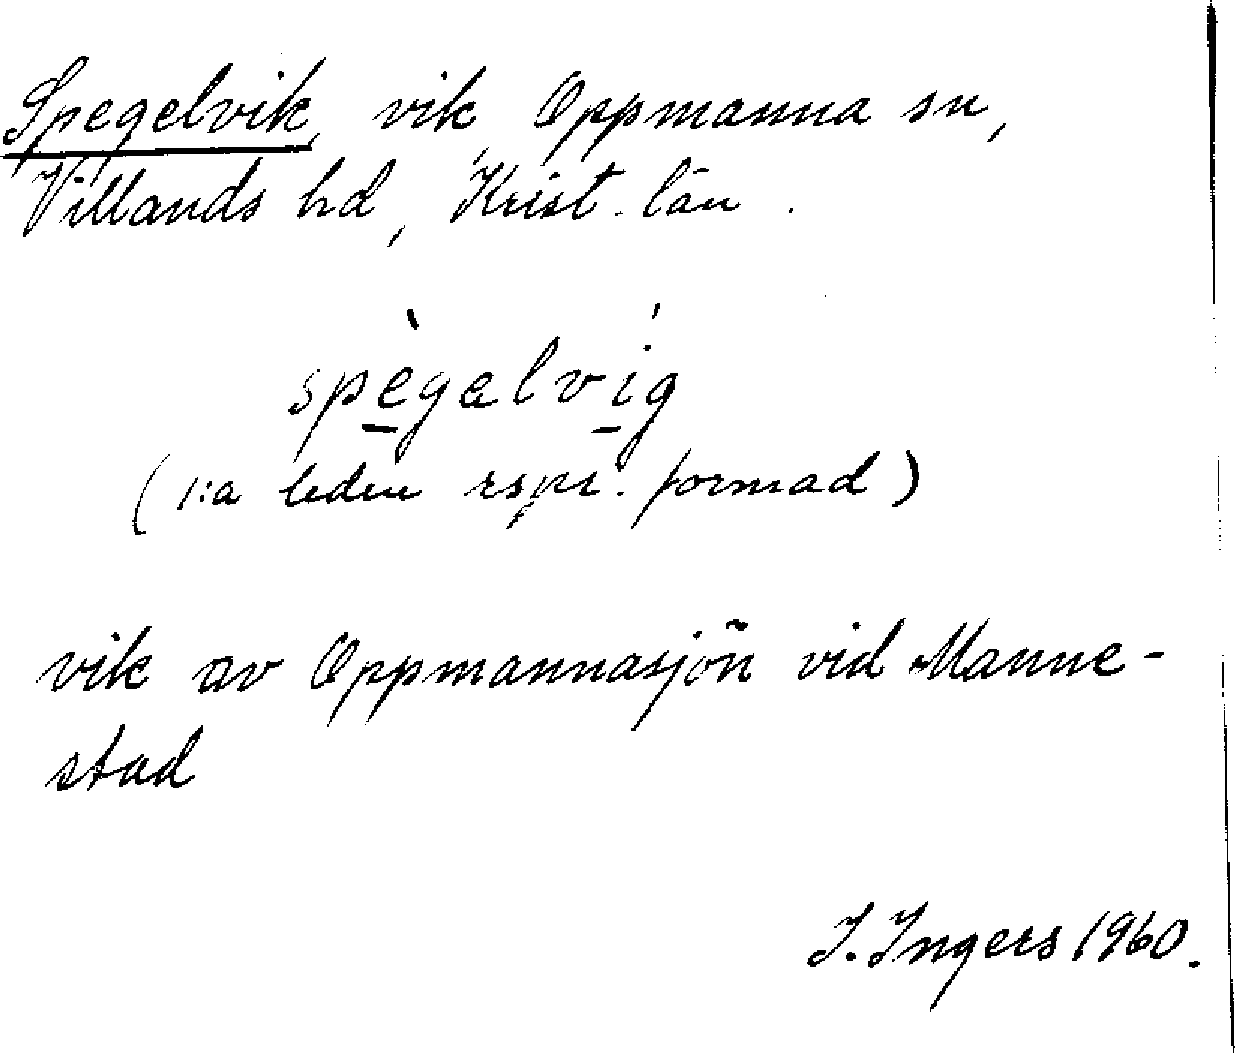 Spegelvik, vik, Oppmanna sn,
Villands hd, Krist. län.
spègəlvíg
(1:a leden rspr. formad)
vik av Oppmannasjön vid Manne-
stad
I. Ingers 1960.